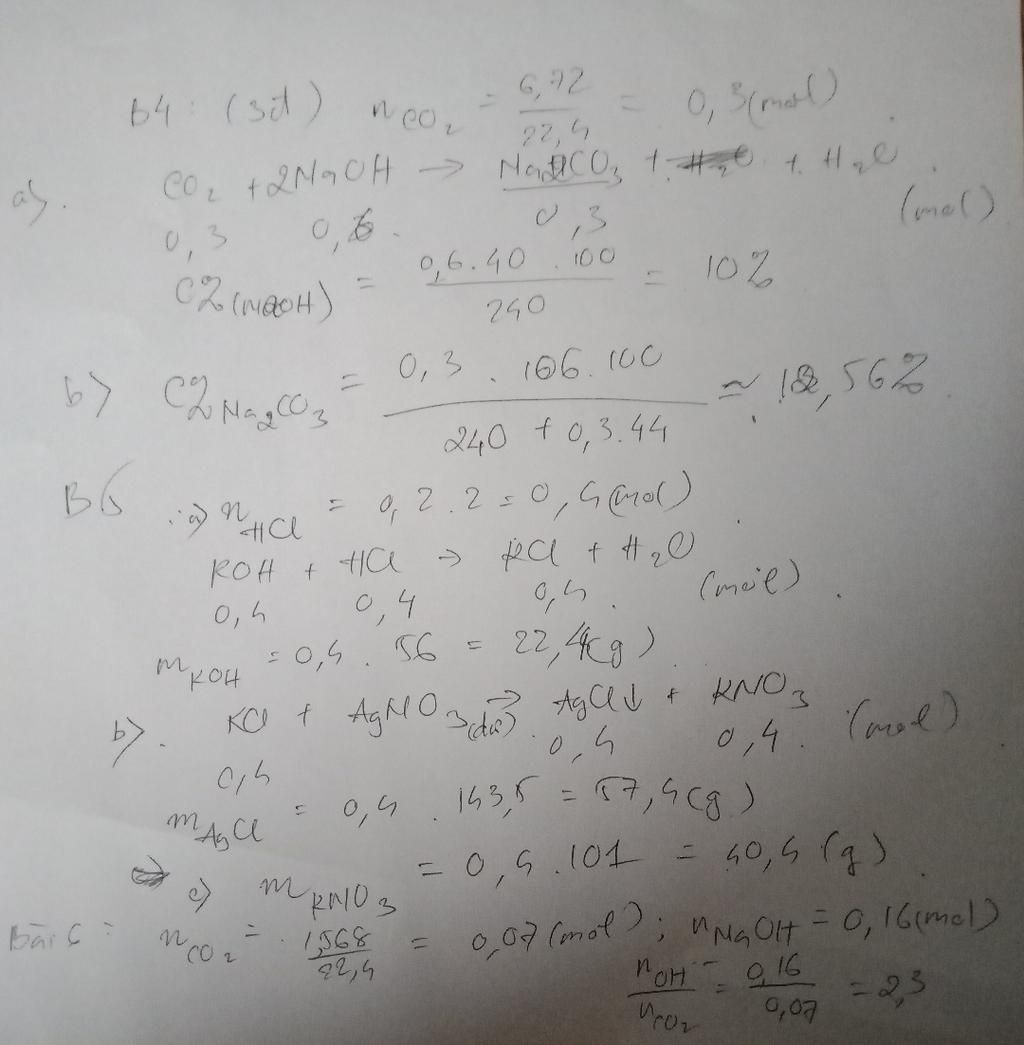 B4 : (3đ) nCO₂ = 6,72/22,4 = 0,3(mol).
a). CO₂ + 2NaOH → Na₂CO₃ + H₂O.
0,3 0,6. 0,3 (mol)
C%(NaOH) = 0,6.40.100/240 = 10%
b) C%Na₂CO₃ = 0,3.106.100/240 + 0,3.44 ≈ 12,56%.
B5 a) nHCl = 0,2.2 = 0,4(mol).
KOH + HCl → KCl + H₂O
0,4 0,4 0,4. (mol).
mKOH = 0,4.56 = 22,4(g).
b). KCl + AgNO₃(dư) → AgCl↓ + KNO₃
0,4 0,4 0,4. (mol).
mAgCl = 0,4.143,5 = 57,4(g)
c) mKNO₃ = 0,4.101 = 40,4(g).
Bài 6 : nCO₂ = 1,568/22,4 = 0,07(mol); nNaOH = 0,16(mol)
nOH⁻/nCO₂ = 0,16/0,07 = 2,3